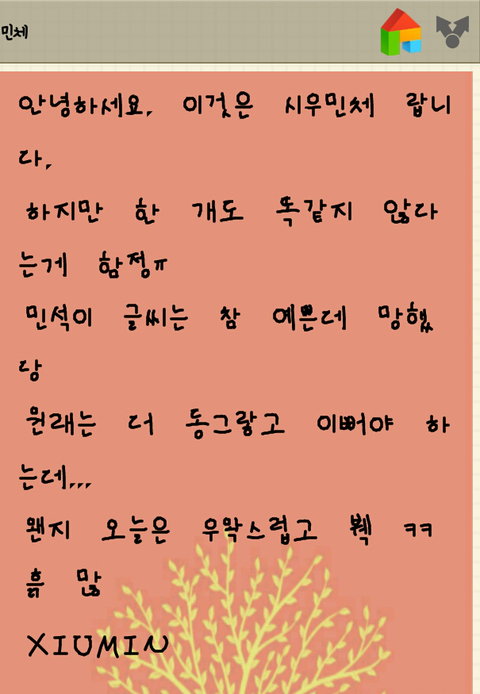 민체
안녕하세요, 이것은 시우민체 랍니
다.
하지만 한 개도 똑같지 않다
는게 함정ㅠ
민석이 글씨는 참 예쁜데 망했
당
원래는 더 동그랗고 이뻐야 하
는데...
왠지 오늘은 우왁스럽고 붹 ㅋㅋ
흙 많
XIUMIN